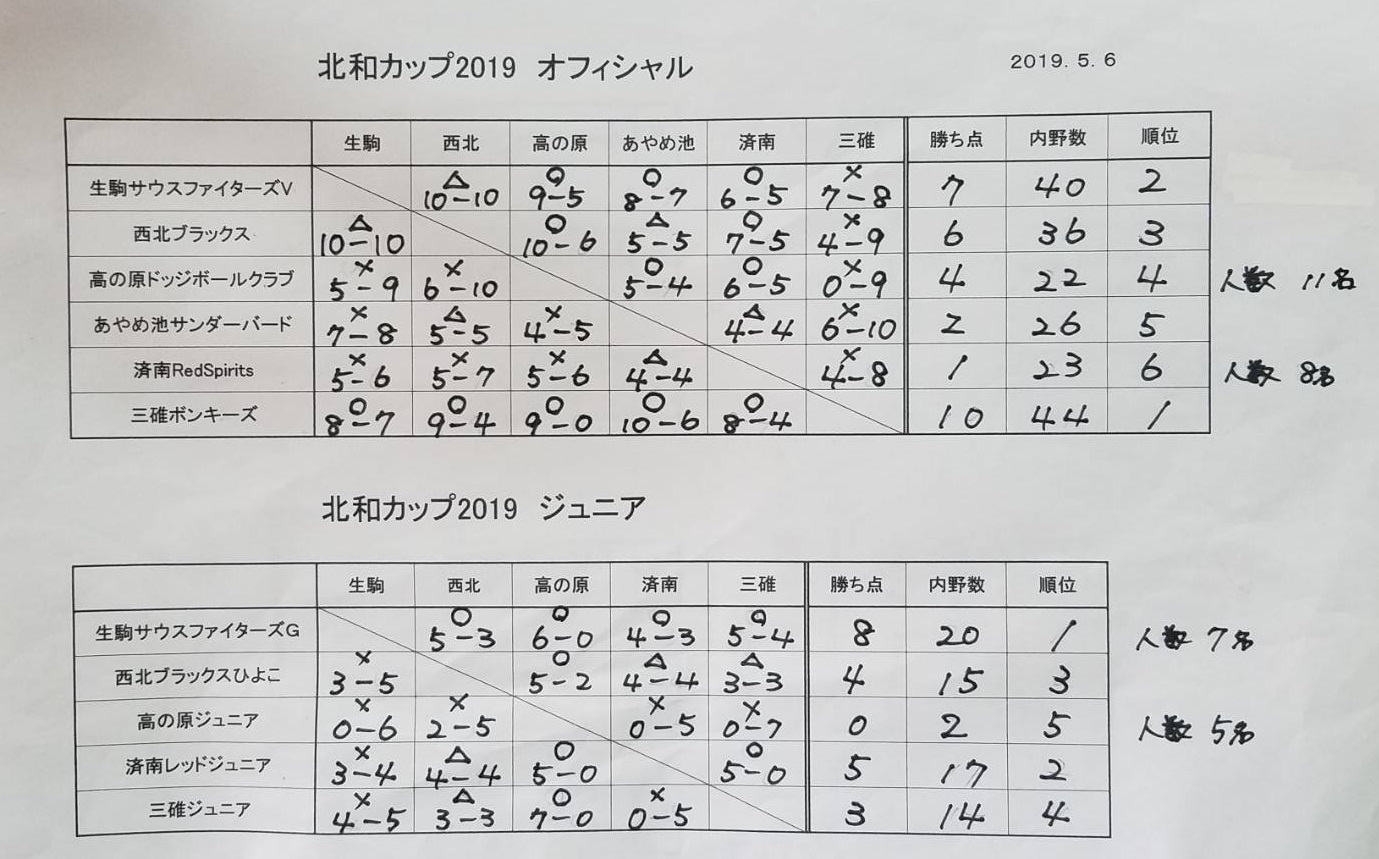 北和カップ2019 オフィシャル 2019.5.6
生駒 西北 高の原 あやめ池 済南 三碓 勝ち点 内野数 順位
生駒サウスファイターズV △ 10-10 ○ 9-5 ○ 8-7 ○ 6-5 × 7-8 7 40 2
西北ブラックス △ 10-10 ○ 10-6 △ 5-5 ○ 7-5 × 4-9 6 36 3
高の原ドッジボールクラブ × 5-9 × 6-10 ○ 5-4 ○ 6-5 × 0-9 4 22 4 人数 11名
あやめ池サンダーバード × 7-8 △ 5-5 × 4-5 △ 4-4 × 6-10 2 26 5
済南RedSpirits × 5-6 × 5-7 × 5-6 △ 4-4 × 4-8 1 23 6 人数 8名
三碓ボンキーズ ○ 8-7 ○ 9-4 ○ 9-0 ○ 10-6 ○ 8-4 10 44 1
北和カップ2019 ジュニア
生駒 西北 高の原 済南 三碓 勝ち点 内野数 順位
生駒サウスファイターズG ○ 5-3 ○ 6-0 ○ 4-3 ○ 5-4 8 20 1 人数 7名
西北ブラックスひよこ × 3-5 ○ 5-2 △ 4-4 △ 3-3 4 15 3
高の原ジュニア × 0-6 × 2-5 × 0-5 × 0-7 0 2 5 人数 5名
済南レッドジュニア × 3-4 △ 4-4 ○ 5-0 ○ 5-0 5 17 2
三碓ジュニア × 4-5 △ 3-3 ○ 7-0 × 0-5 3 14 4